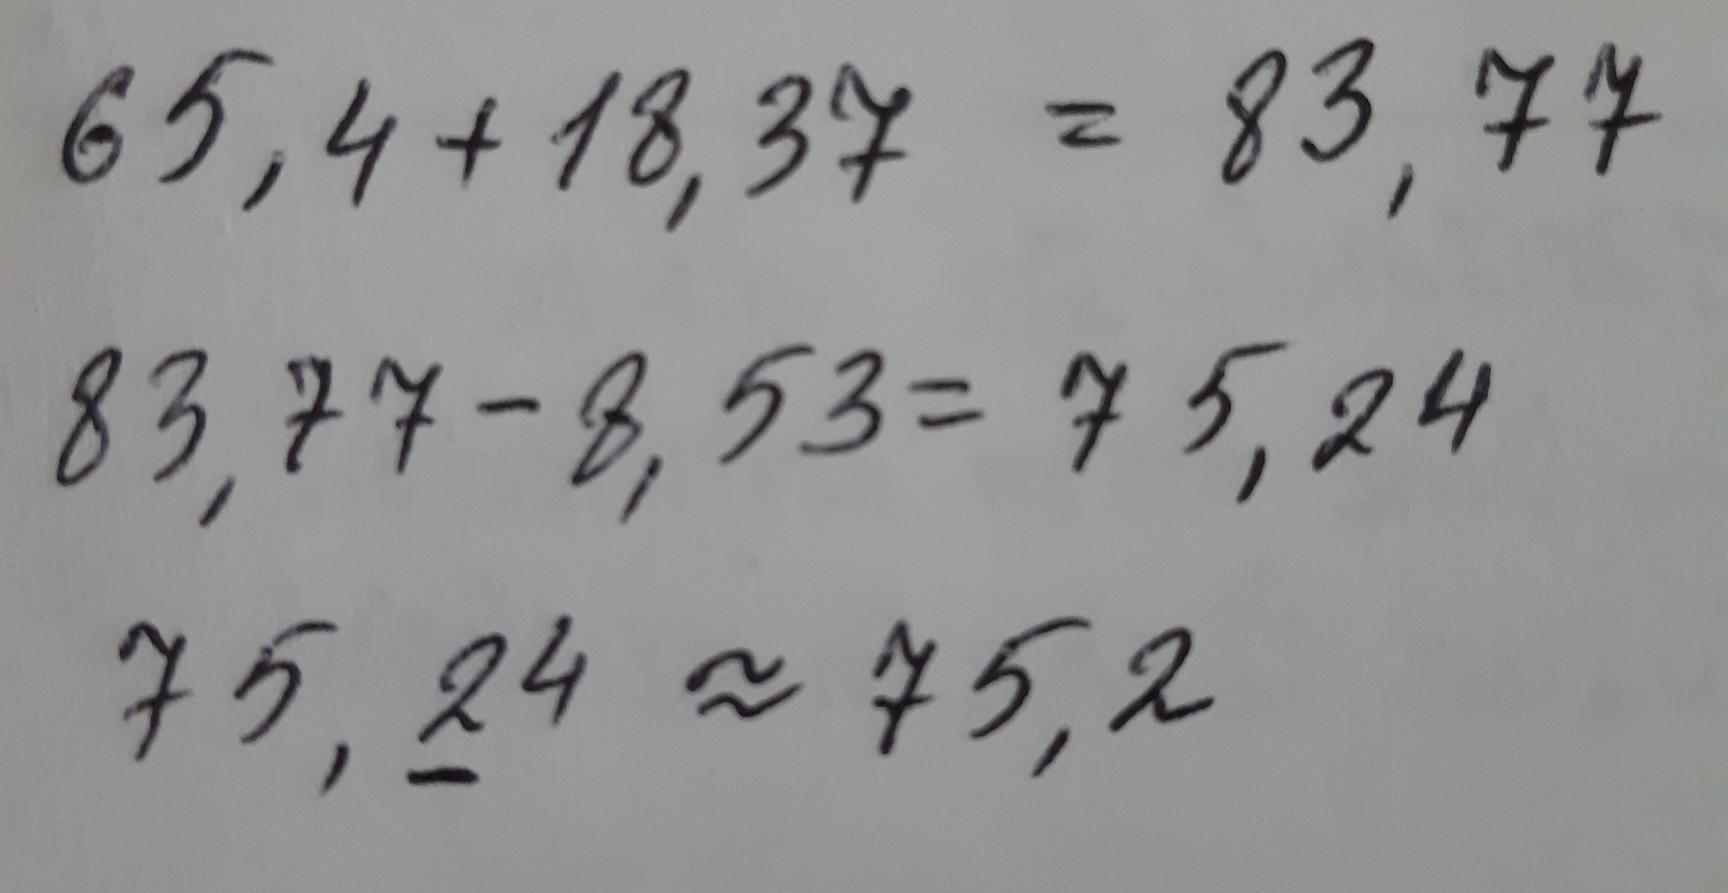 65,4+18,37 = 83,77
83,77-8,53=75,24
75,24 ≈ 75,2